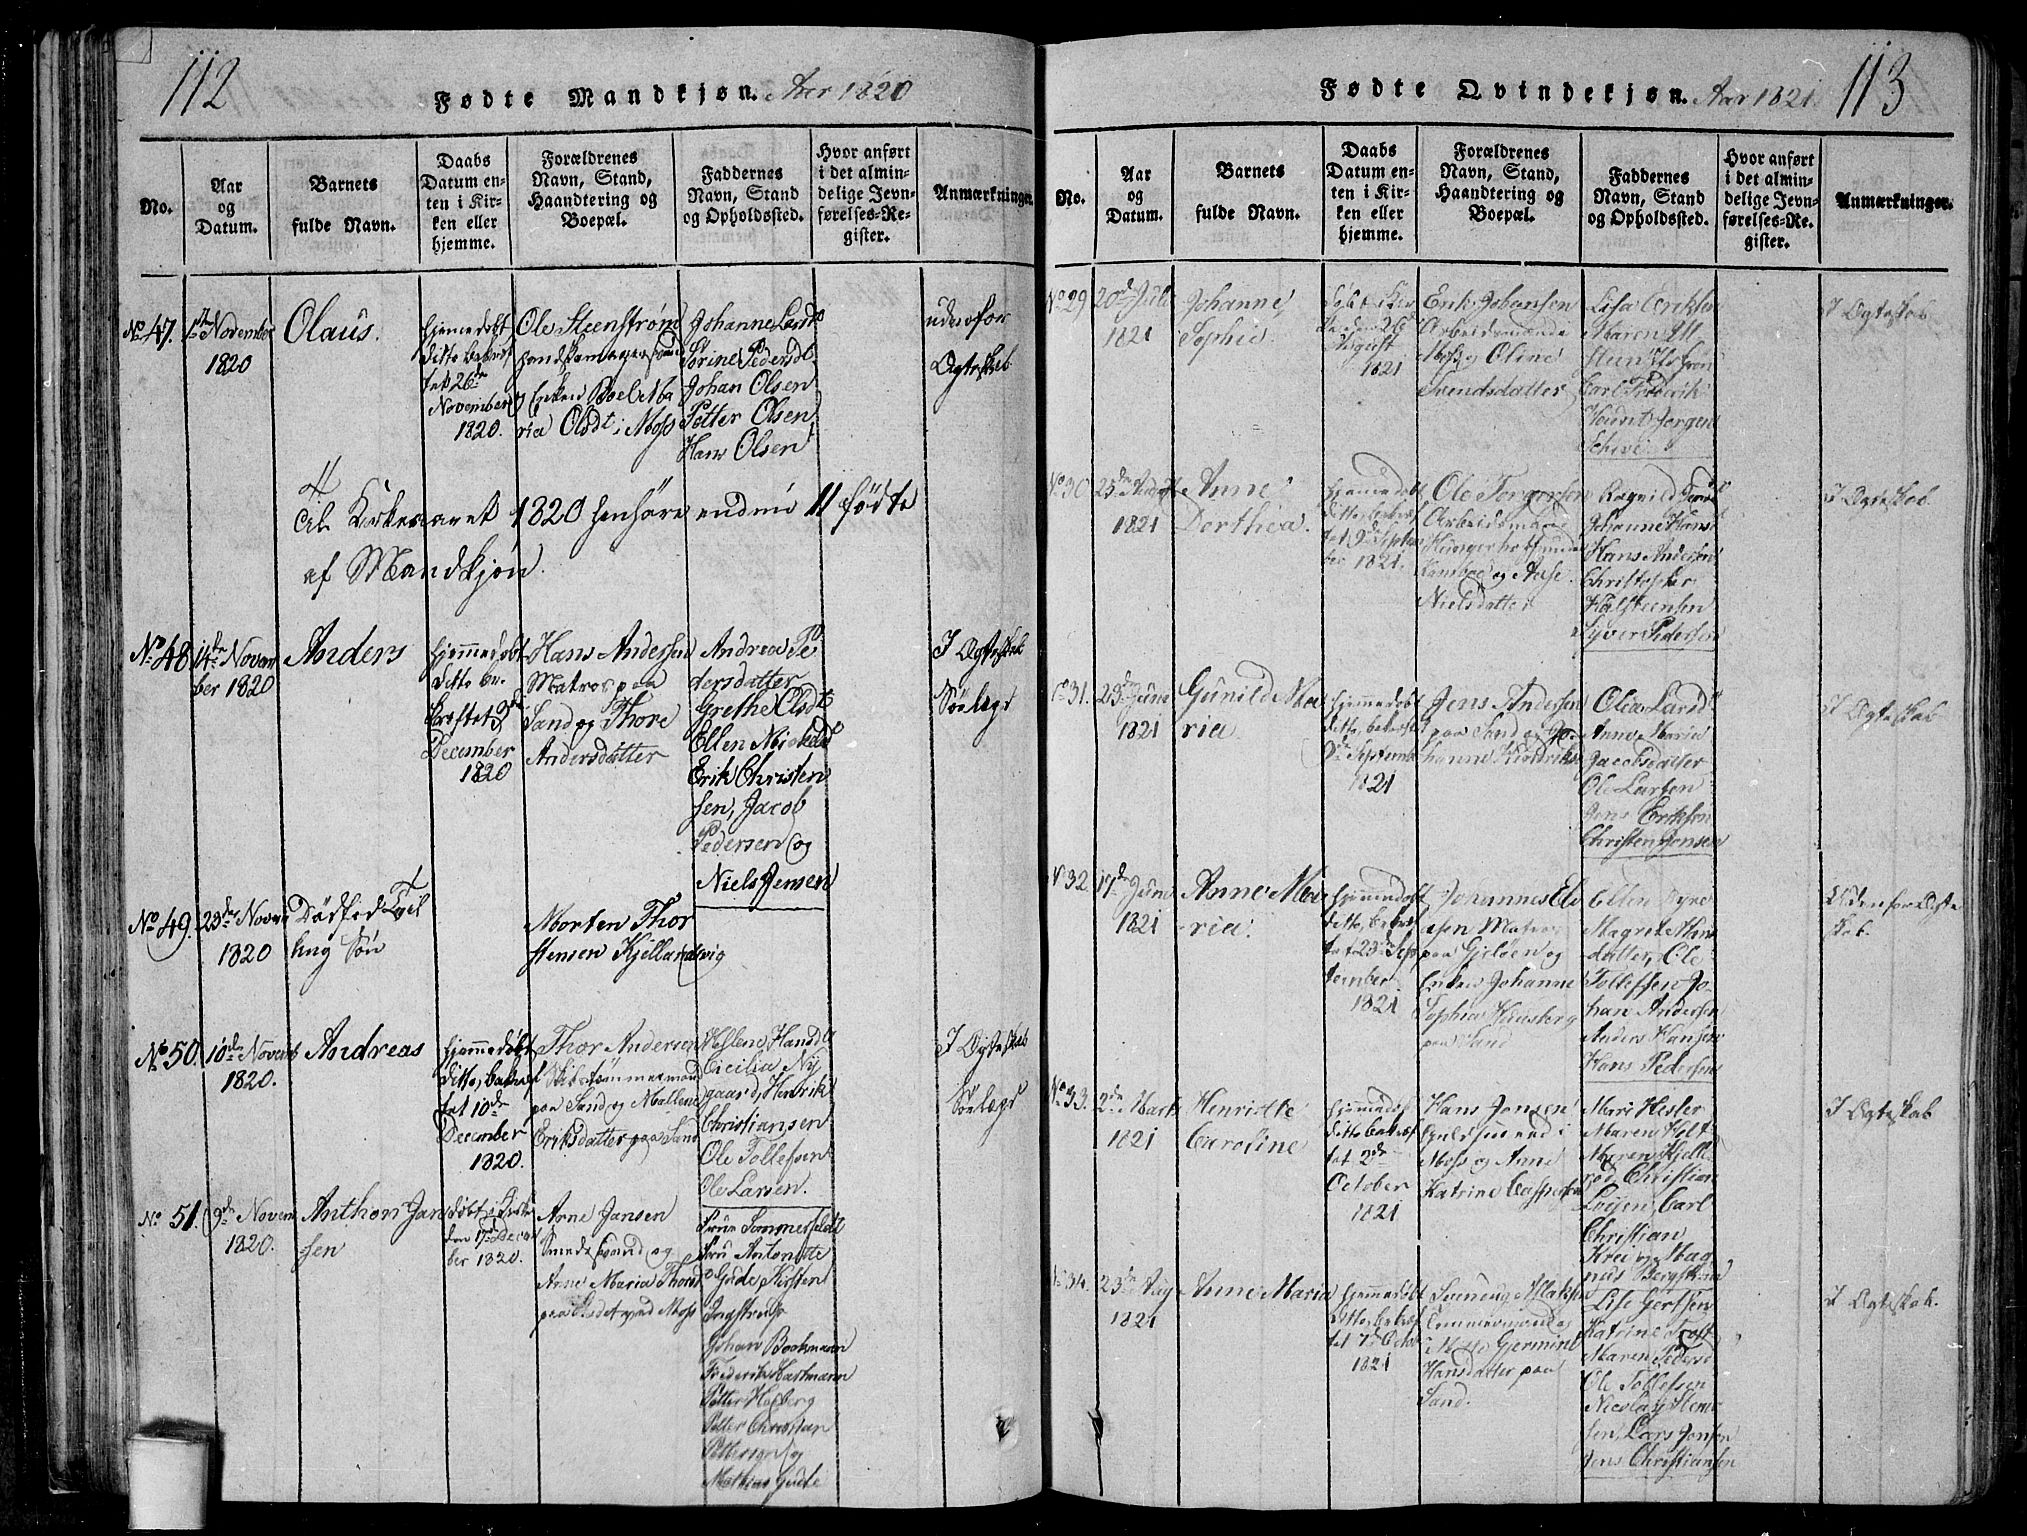 112
Fødte Mandkjøn. Aar 1820
No.
Aar
og
Datum.
Barnets
fulde Navn.
Daabs
Datum en-
ten i Kir-
ken eller
hjemme.
Forældrenes
Navn, Stand,
Haandtering og
Boepæl.
Faddernes
Navn, Stand
og Opholdssted.
Hvor anført
i det almin-
delige Jevn-
førelses-Re-
gister.
Anmærkninger.
No 47.
November
1820
Olaus.
hjemmedøbt
ditto bekræf
tet 26de
November
1820.
Ole Steenstrøm
og Enken Boel Ma
ria Olsdt i Moss
Johanne Larsd
Sørine Pedersdt
Johan Olsen
Petter Olsen
Hans Olsen
udenfor
Ægteskab
Til Kirkeaaret 1820 henhøre endnu 11 fødte
af Mandkjøn.
No 48
14de Novem
ber 1820
Anders
hjemmedøbt
ditto be-
kræftet 3de
December
1820
Hans Andersen
Matros paa
Sand og Thore
Andersdatter
Andrea Pe
dersdatter
Grethe Olsdt
Ellen Nickelsd
Erik Christen
sen, Jacob
Pedersen og
Niels Jensen
I Ægteskab
Sølægd
No 49.
23de Novem
1820
Dødfød Tvil
ling Søn
Morten Thor
stensen Kjellandsvig
No 50
10de Novemb
1820.
Andreas
hjemmedøbt
ditto, bekræf
tet 10de
December
1820.
Thor Andersen
Skibstømmermand
paa Sand og Mallene
Eriksdatter paa Sand
Mallene Hansd
Cicilia Ny
gaard, Henrik
Christiansen
Ole Tollefsen
Ole Larsen.
I Ægteskab
Sølægd
No 51.
9de Novem
1820.
Anthon Jan
sen
døbt i Kirke
den 17de Decem
ber 1820.
Arne Jansen
Smedesvend og
Anne Maria Thorsd
Fru Sommerfeldt
Fru Antonette
Gude, Kirsten
Johan Bockmann
Frederik Hartmann
Petter Høfberg
Petter Christian
Pettersen og
Mathias Gude
113
Fødte Qvindekjøn. Aar 1821
No.
Aar
og
Datum.
Barnets
fulde Navn.
Daabs
Datum en-
ten i Kir-
ken eller
hjemme.
Forældrenes
Navn, Stand,
Haandtering og
Boepæl.
Faddernes
Navn, Stand
og Opholdssted.
Hvor anført
i det almin-
delige Jevn-
førelses-Re-
gister.
Anmærkninger.
No 29
20de Juli
1821
Johanne
Sophie
døbt i Kir
ken den 26
August
1821
Erik Johansen
Arbeidsmand i
Moss og Oline
Svendsdatter
Lisa Eriksen
Maren
Carl Frederik
Jørgen
I Ægteskab
No 30
25de August
1821
Anne
Dorthea.
hjemmedøbt
ditto, bekræf
tet 9de Septem
ber 1821.
Ole Torgersen
og Aase
Nielsdatter
Ragnild
Johanne Hansd
Hans Andersen
Christopher
Syver Pedersen
I Ægteskab.
No 31.
23de June
1821
Gunild Ma
ria
hjemmedøbt
ditto bekræftet
9de Septemb
1821
Jens Andersen
paa Sand og Jo-
hanne Hendriks
Olia Larsd
Anne Maria
Jacobsdatter
Ole Larsen
Jens Eriksen
Christen Jensen
I Ægteskab
No 32.
17de June
1821
Anne Ma
ria.
hjemmedøbt
ditto, bekræf
tet 23de Sep
tember
1821
Johannes
Matros
paa Gjeløen og
Enken Johanne
Sophia
paa Sand
Ellen
Magrete Hans
datter, Ole
Tollefsen Jo-
han Andersen
Anders Hansen
Hans Pedersen
Udenfor Ægte
skab.
No 33.
2de Marts
1821
Henriette
Caroline
hjemmedøbt
ditto bekræf
tet 2de
October
1821
Hans Jensen
Guldsmed i
Moss og Anne
Katrine Caspersen
Mari Hesler
Maren Holt
Maren Kjelle
rød Christian
Carl
Christian
Krei og Mag
nus Bergstrøm
I Ægteskab
No 34.
23de Aug
1821
Anne Maria
hjemmedøbt
ditto, bekræf
tet 7de Octob
1821
Svenung
Tømmermand
Hansdatter paa
Sand.
Lise Gertsen
Katrine
Maren Pedersd
Ole Tollefsen
Nicolay Han
sen, Lars Jensen
Jens Christiansen
I Ægteskab.